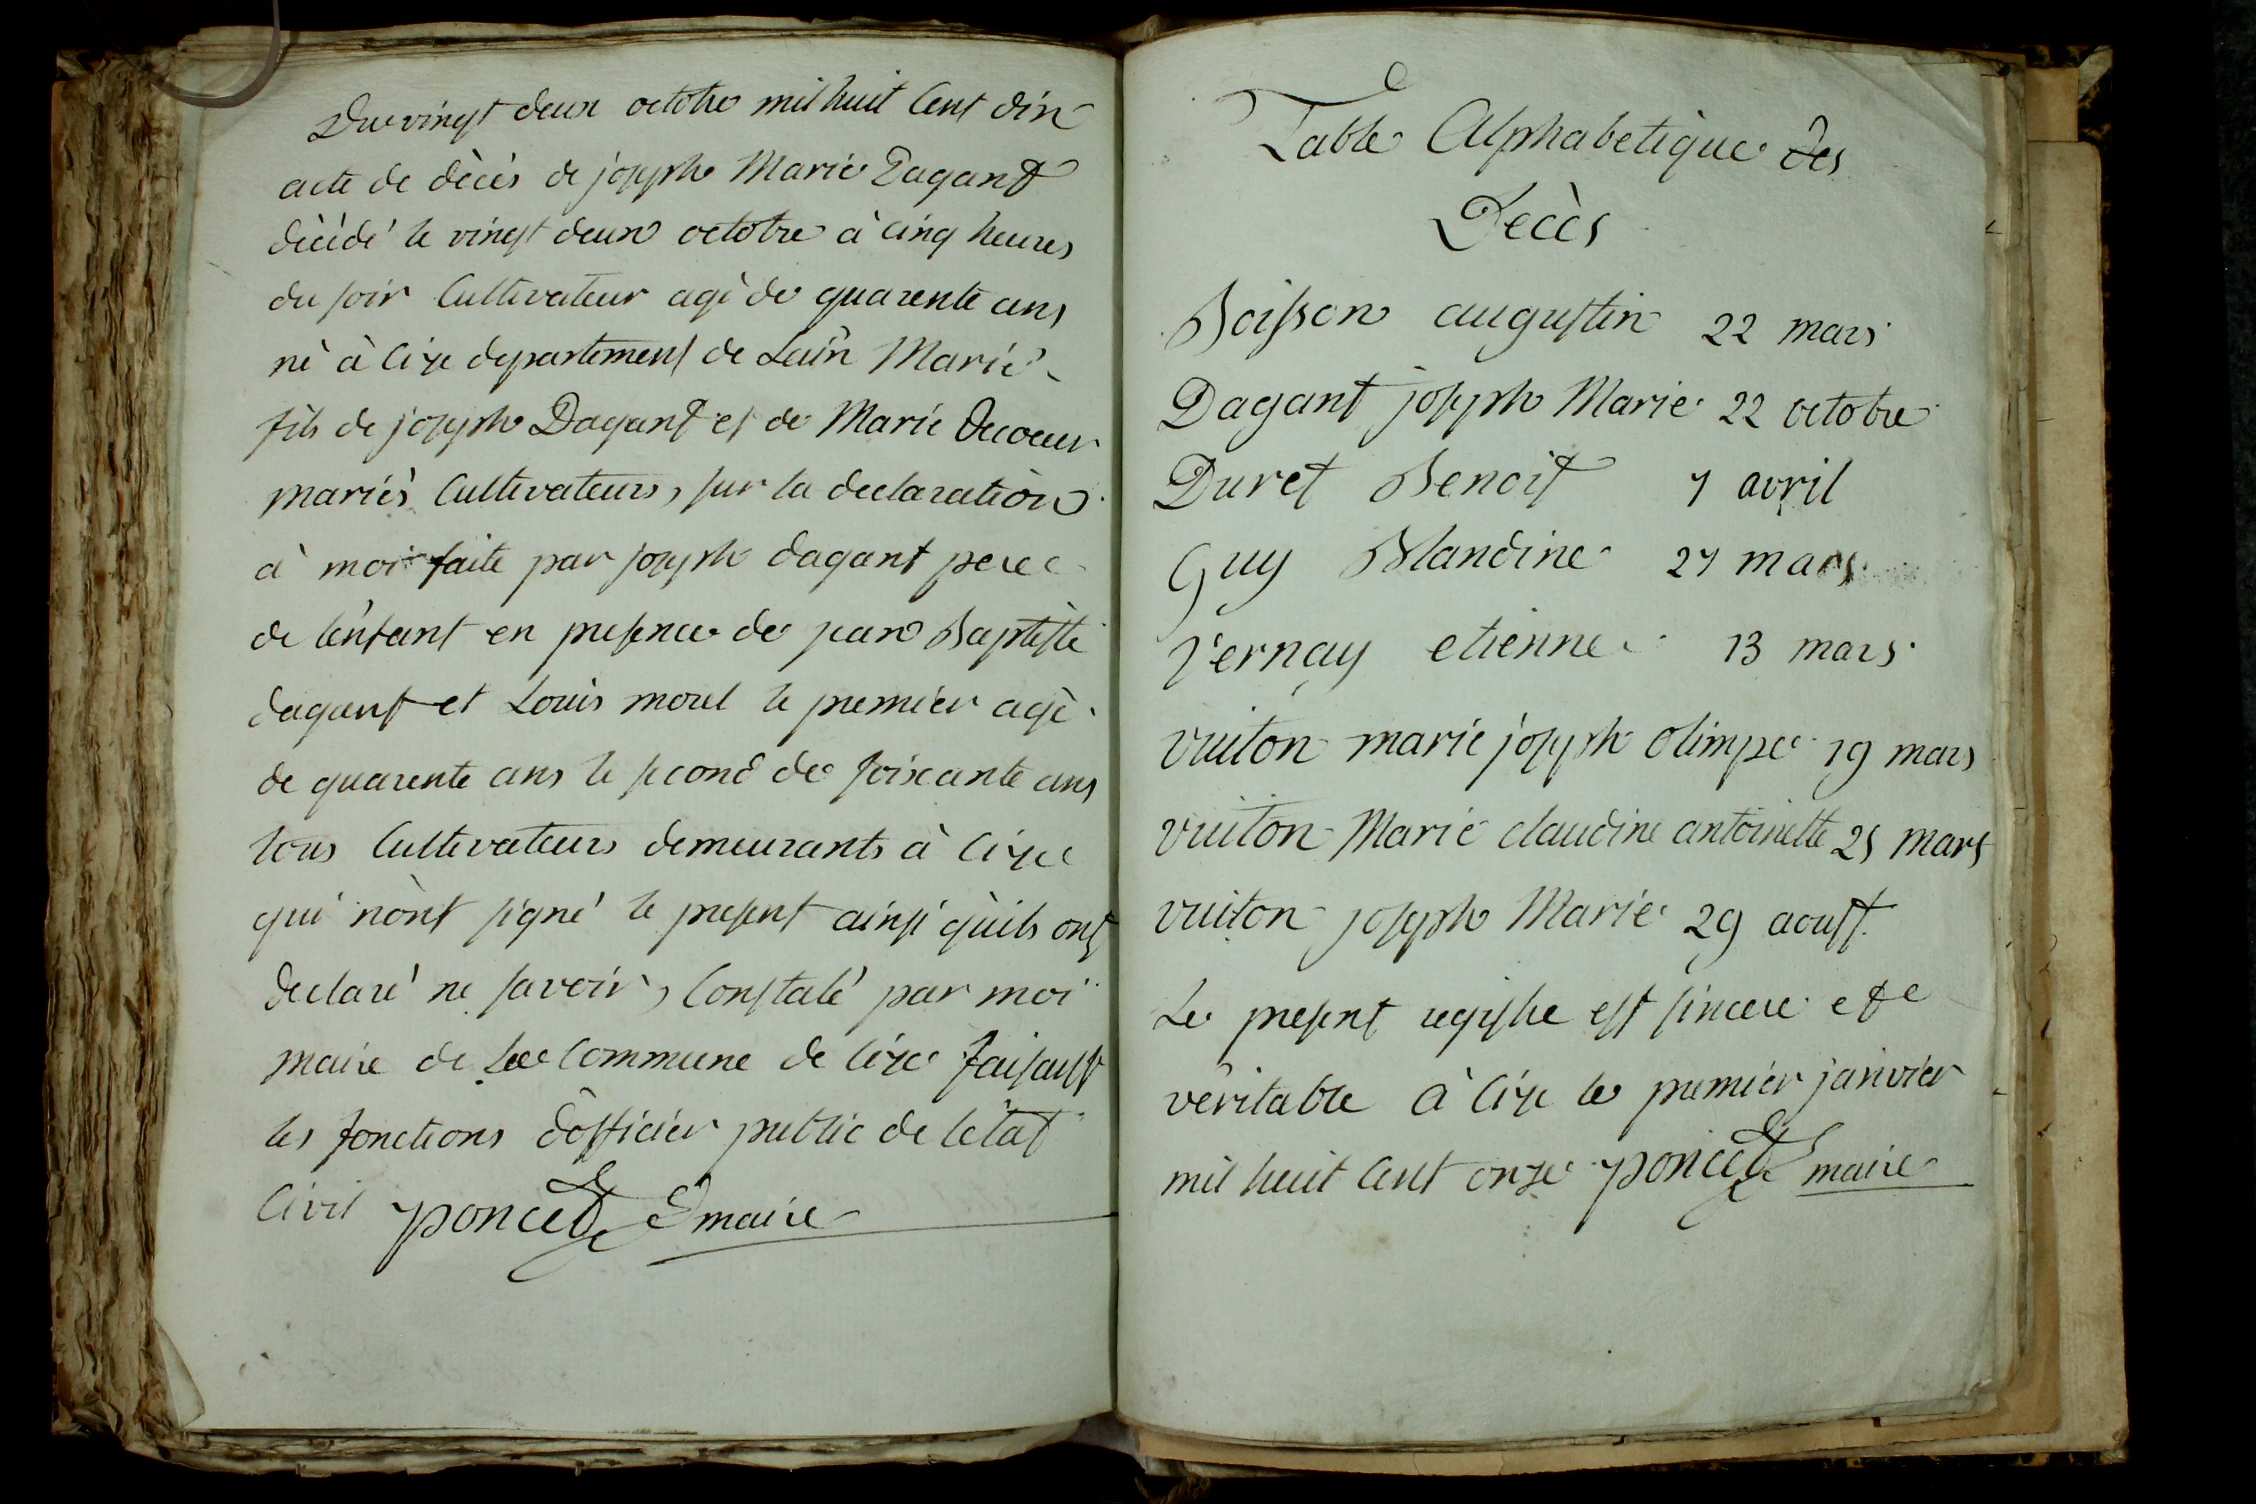 Du vingt deux octobre mil huit Cent dix
acte de dècès de joseph Marie Dagant
dècèdé le vingt deux octobre à cinq heures
du soir Cultivateur agè de quarente ans
nè à Cize departement de Lain Marié
fils de joseph Dagant et de Marie Decoeur
mariès Cultivateurs, sur la declaration
à moi faite par joseph dagant pere
de lenfant en presence de jean Baptiste
dagant et Louis morel le premier agè
de quarente ans le second de soixante ans
tous Cultivateurs demeurants à Cize
qui n'ont signé le present ainsi qu'ils ont
declaré ne savoir, Constaté par moi
maire de la Commune de Cize faisant
les fonctions d'officier public de letat
Civil poncet maire
Table Alphabetique des
Decès
Boisson augustin 22 mars
Dagant joseph Marie 22 octobre
Duret Benoit 7 avril
Guy Blandine 27 mars
Vernay etienne 13 mars
vuiton marie joseph olimpe 19 mars
vuiton Marie claudine antoinette 25 mars
vuiton joseph Marie 29 aoust
Le present registre est sincere et
vèritable à Cize le premier janvier
mil huit Cent onze poncet maire